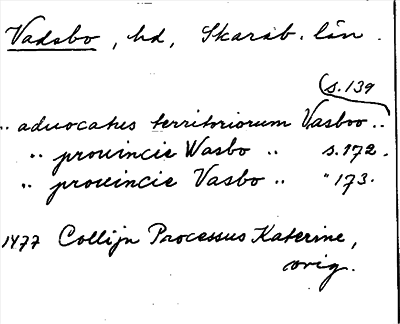 Vadsbo, hd, Skarab. län.
s. 139
.. advocatus territoriorum Vasboo ..
" provincie Wasbo " s. 172.
" provincie Vasbo " " 173.
1477 Collijn Processus Katerine,
orig.